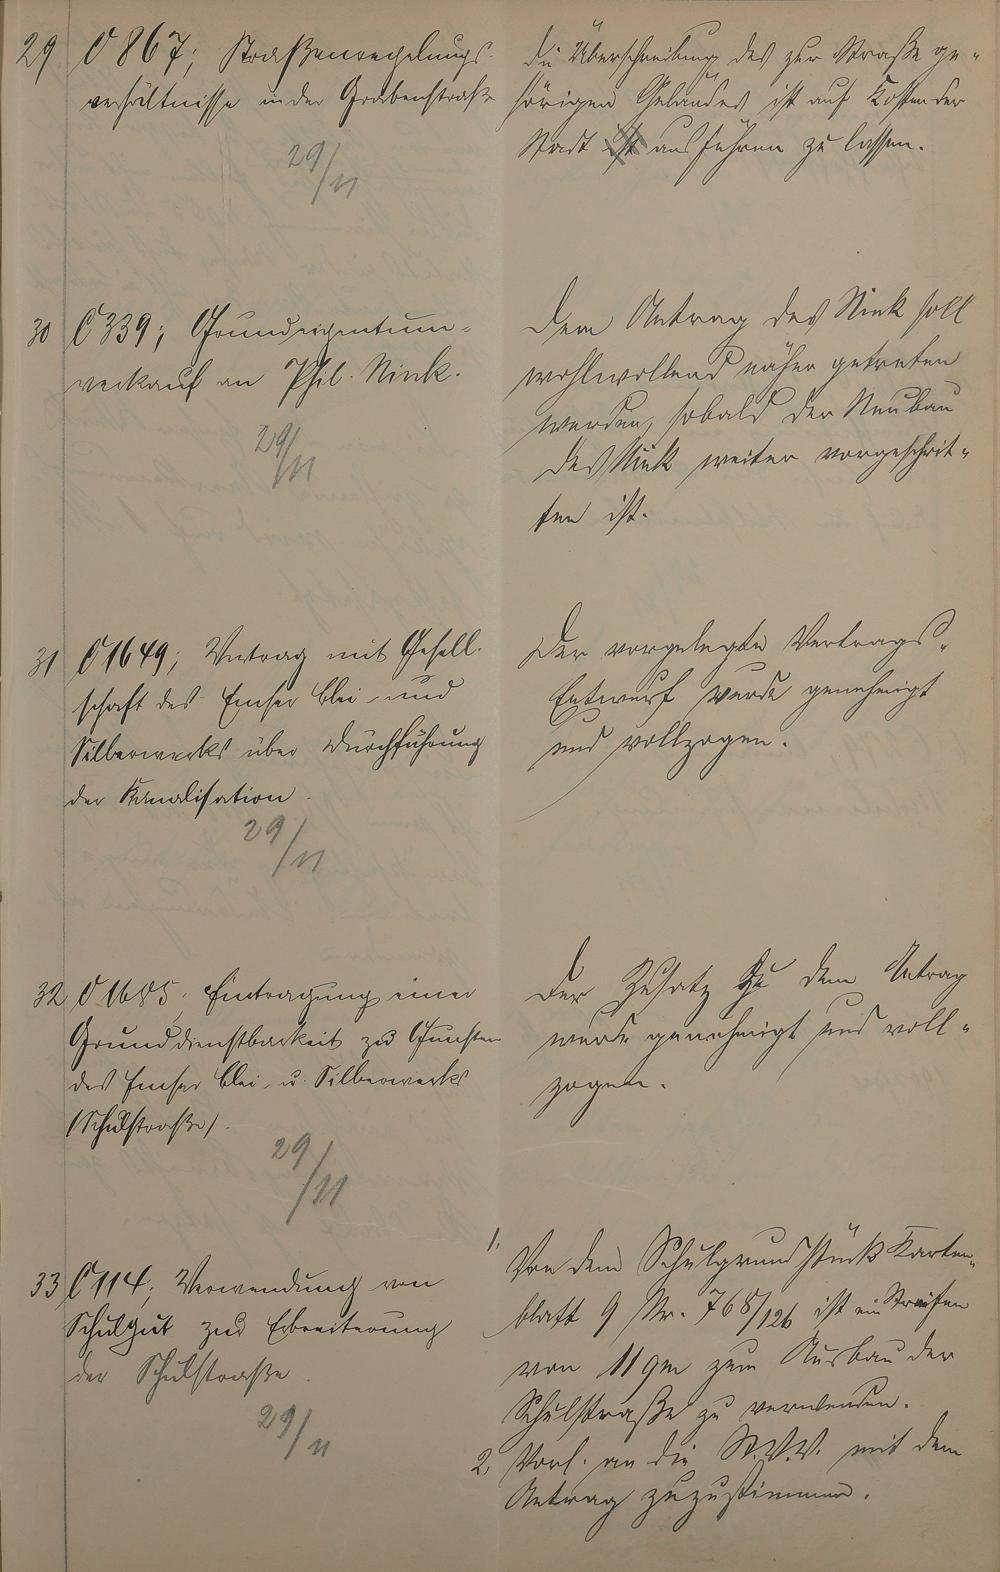 29 C 867; Straßenregelungs-
verhältnisse in der Grabenstraße
29/11
die Überschreibung des zur Straße ge-
hörigen Geländes ist auf Kosten der
Stadt ausführen zu lassen.
30 C 339; Grundeigentum-
verkauf an Phil. Nink.
29/11
Dem Antrag des Nink soll
wohlwollend näher getreten
werden, sobald der Neubau
des Nink weiter vorgeschrit-
ten ist.
31 C 1649; Vertrag mit Gesell-
schaft des Emser Blei- und
Silberwerks über Durchführung
der Kanalisation.
29/11
Der vorgelegte Vertrags-
Entwurf wurde genehmigt
und vollzogen.
32 C 1685. Eintragung einer
Grunddienstbarkeit zu Gunsten
des Emser Blei- u. Silberwerks
(Schulstraße).
29/11
Der Zusatz zu dem Antrag
wurde genehmigt und voll-
zogen.
33 C 114; Verwendung von
Schulgut zur Erbreiterung
der Schulstraße.
29/11
1. Von dem Schulgrundstück Karten-
blatt 9 Nr. 768/126 ist ein Streifen
von 11 qm zum Ausbau der
Schulstraße zu verwenden.
2. Vorl. an die St.V.V. mit dem
Antrag zuzustimmen.